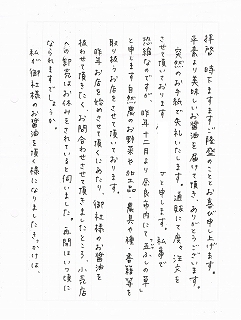 拝啓 時下ますますご隆盛のこととお喜び申し上げます。
平素より美味しいお醤油を届けて頂き、ありがとうございます。
突然のお手紙、失礼いたします。通販にて度々注文を
させて頂いております
と申します。私事で
恐縮なのですが、昨年十二月より奈良市内にて
と申します自然農のお野菜や加工品・農具や種・書籍等を
取り扱うお店をさせて頂いております。
昨年お店を始めさせて頂くにあたり、御社様のお醤油を
扱わせて頂きたくお問合せさせて頂きましたところ、小売店
への卸売はお休みをされていると伺いました。再開はいつ頃に
なられますでしょうか。
私が御社様のお醤油を頂く様になりましたきっかけは、